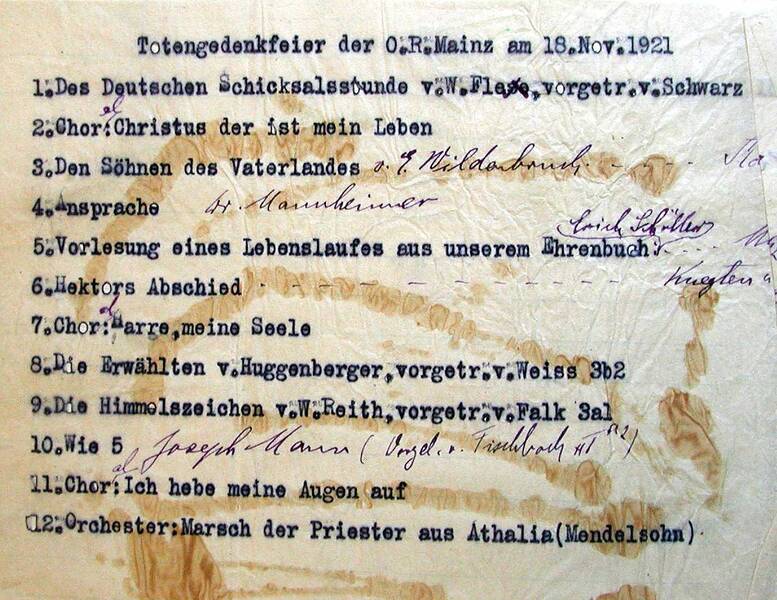 Totengedenkfeier der O.R.Mainz am 18.Nov.1921
1.Des Deutschen Schicksalsstunde v.W.Flexe,vorgetr.v.Schwarz
2.Chor:Christus der ist mein Leben
3.Den Söhnen des Vaterlandes v. E. Wildenbruch
4.Ansprache Dr. Mannheimer
Erich Schöller
5.Vorlesung eines Lebenslaufes aus unserem Ehrenbuch:
6.Hektors Abschied
7.Chor:Harre,meine Seele
8.Die Erwählten v.Huggenberger,vorgetr.v.Weiss 3b2
9.Die Himmelszeichen v.W.Reith,vorgetr.v.Falk 3a1
10.Wie 5 Joseph Mann (Vorgel. v. Fischbach III a2)
11.Chor:Ich hebe meine Augen auf
12.Orchester:Marsch der Priester aus Athalia(Mendelsohn)